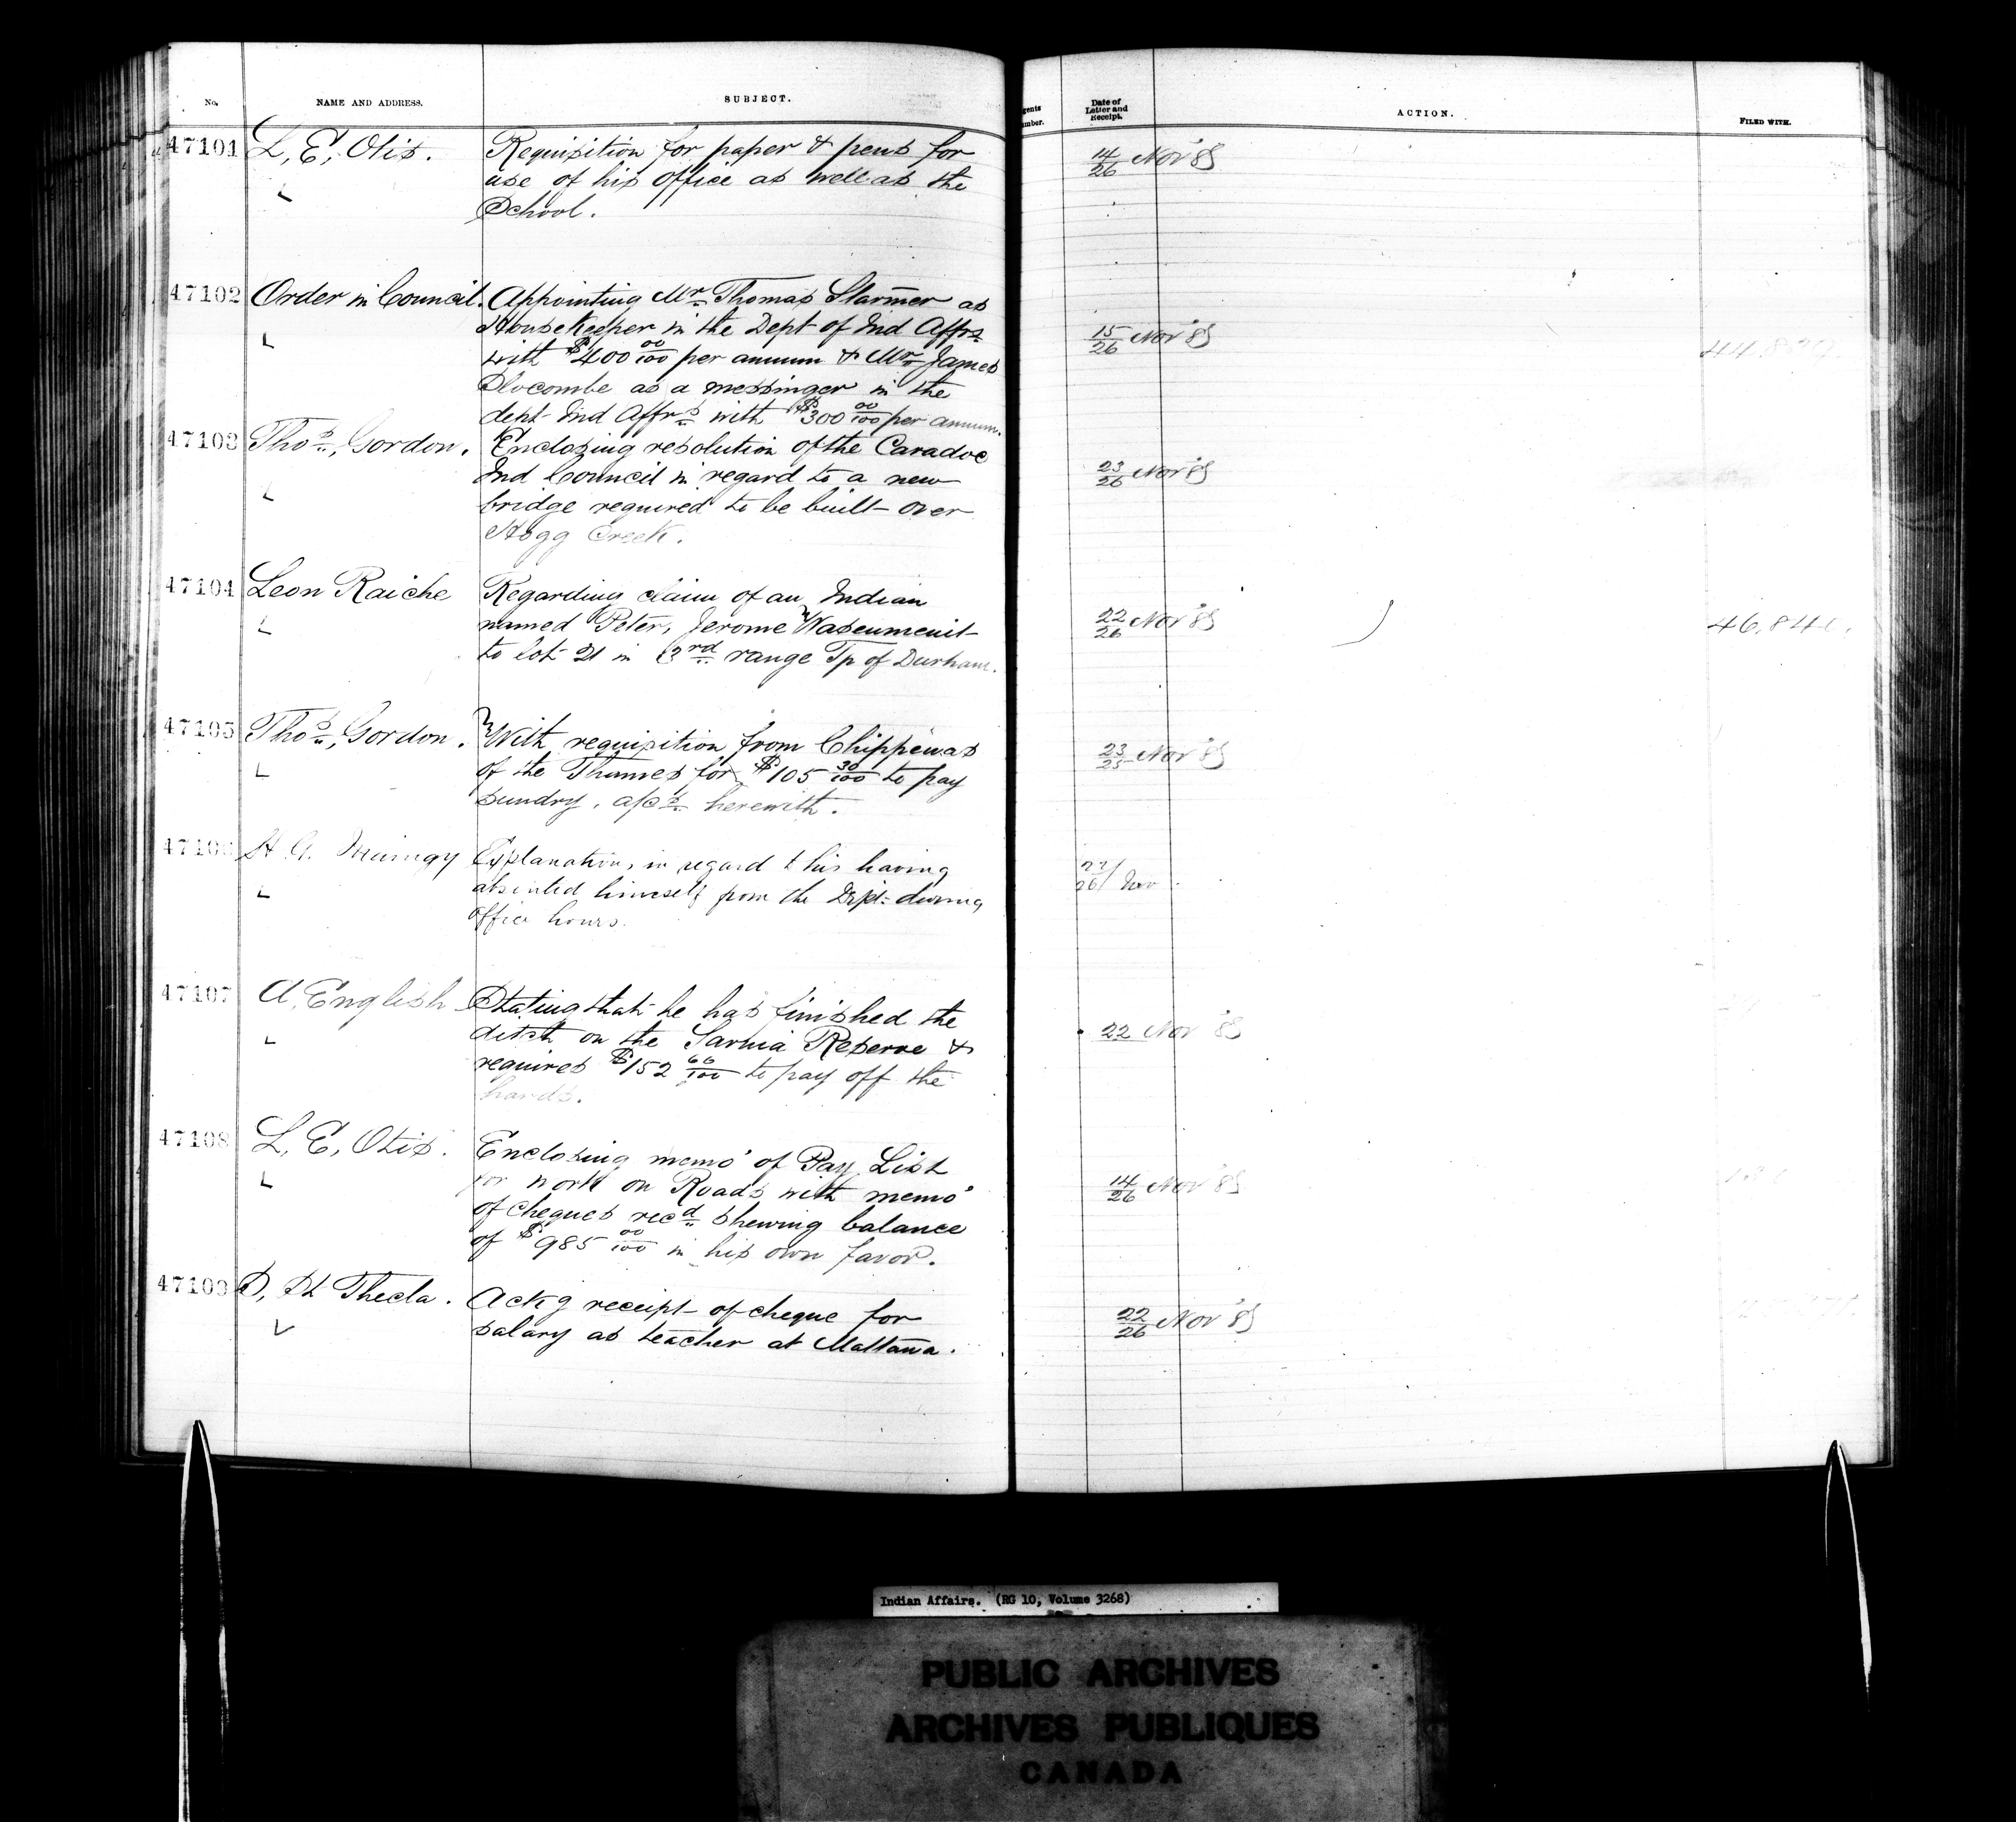 No. NAME AND ADDRESS. SUBJECT. Agents Number. Date of Letter and Receipt. ACTION. FILED WITH.
47101 L, E, Otis. Requisition for paper & pens for
use of his office as well as the
School.
14/26 Nov '85
47102 Order in Council. Appointing Mr. Thomas Starmer as
Housekeeper in the Dept of Ind Affrs
with $400 00/100 per annum & Mr James
Slocombe as a messinger in the
dept Ind Affrs with $300 00/100 per annum.
15/26 Nov '85
47103 Thos, Gordon. Enclosing resolution of the Caradoc
Ind Council in regard to a new
bridge required to be built over
Hogg Creek.
23/26 Nov '85
47104 Leon Raiche Regarding claim of an Indian
named Peter, Jerome
to lot 21 in 3rd range Tp of Durham.
22/26 Nov '85
47105 Thos, Gordon. With requisition from Chippewas
of the Thames for $105 30/100 to pay
sundry, a/cs herewith.
23/25 Nov '85
47106 H. G. Explanation, in regard to his having
absented himself from the Dept: during
office hours.
27/26 Nov
47107 A. English Stating that he has finished the
ditch on the Sarnia Reserve &
requires $152 66/100 to pay off the
hands.
22 Nov '85
47108 L, E, Otis. Enclosing memo' of Pay List
for work on Roads with memo'
of cheques recd shewing balance
of $985 00/100 in his own favor.
14/26 Nov '85
47109 S, St Thecla. Ackg receipt of cheque for
salary as teacher at Mattawa.
22/26 Nov '85
Indian Affairs. (RG 10, Volume 3268)
PUBLIC ARCHIVES
ARCHIVES PUBLIQUES
CANADA